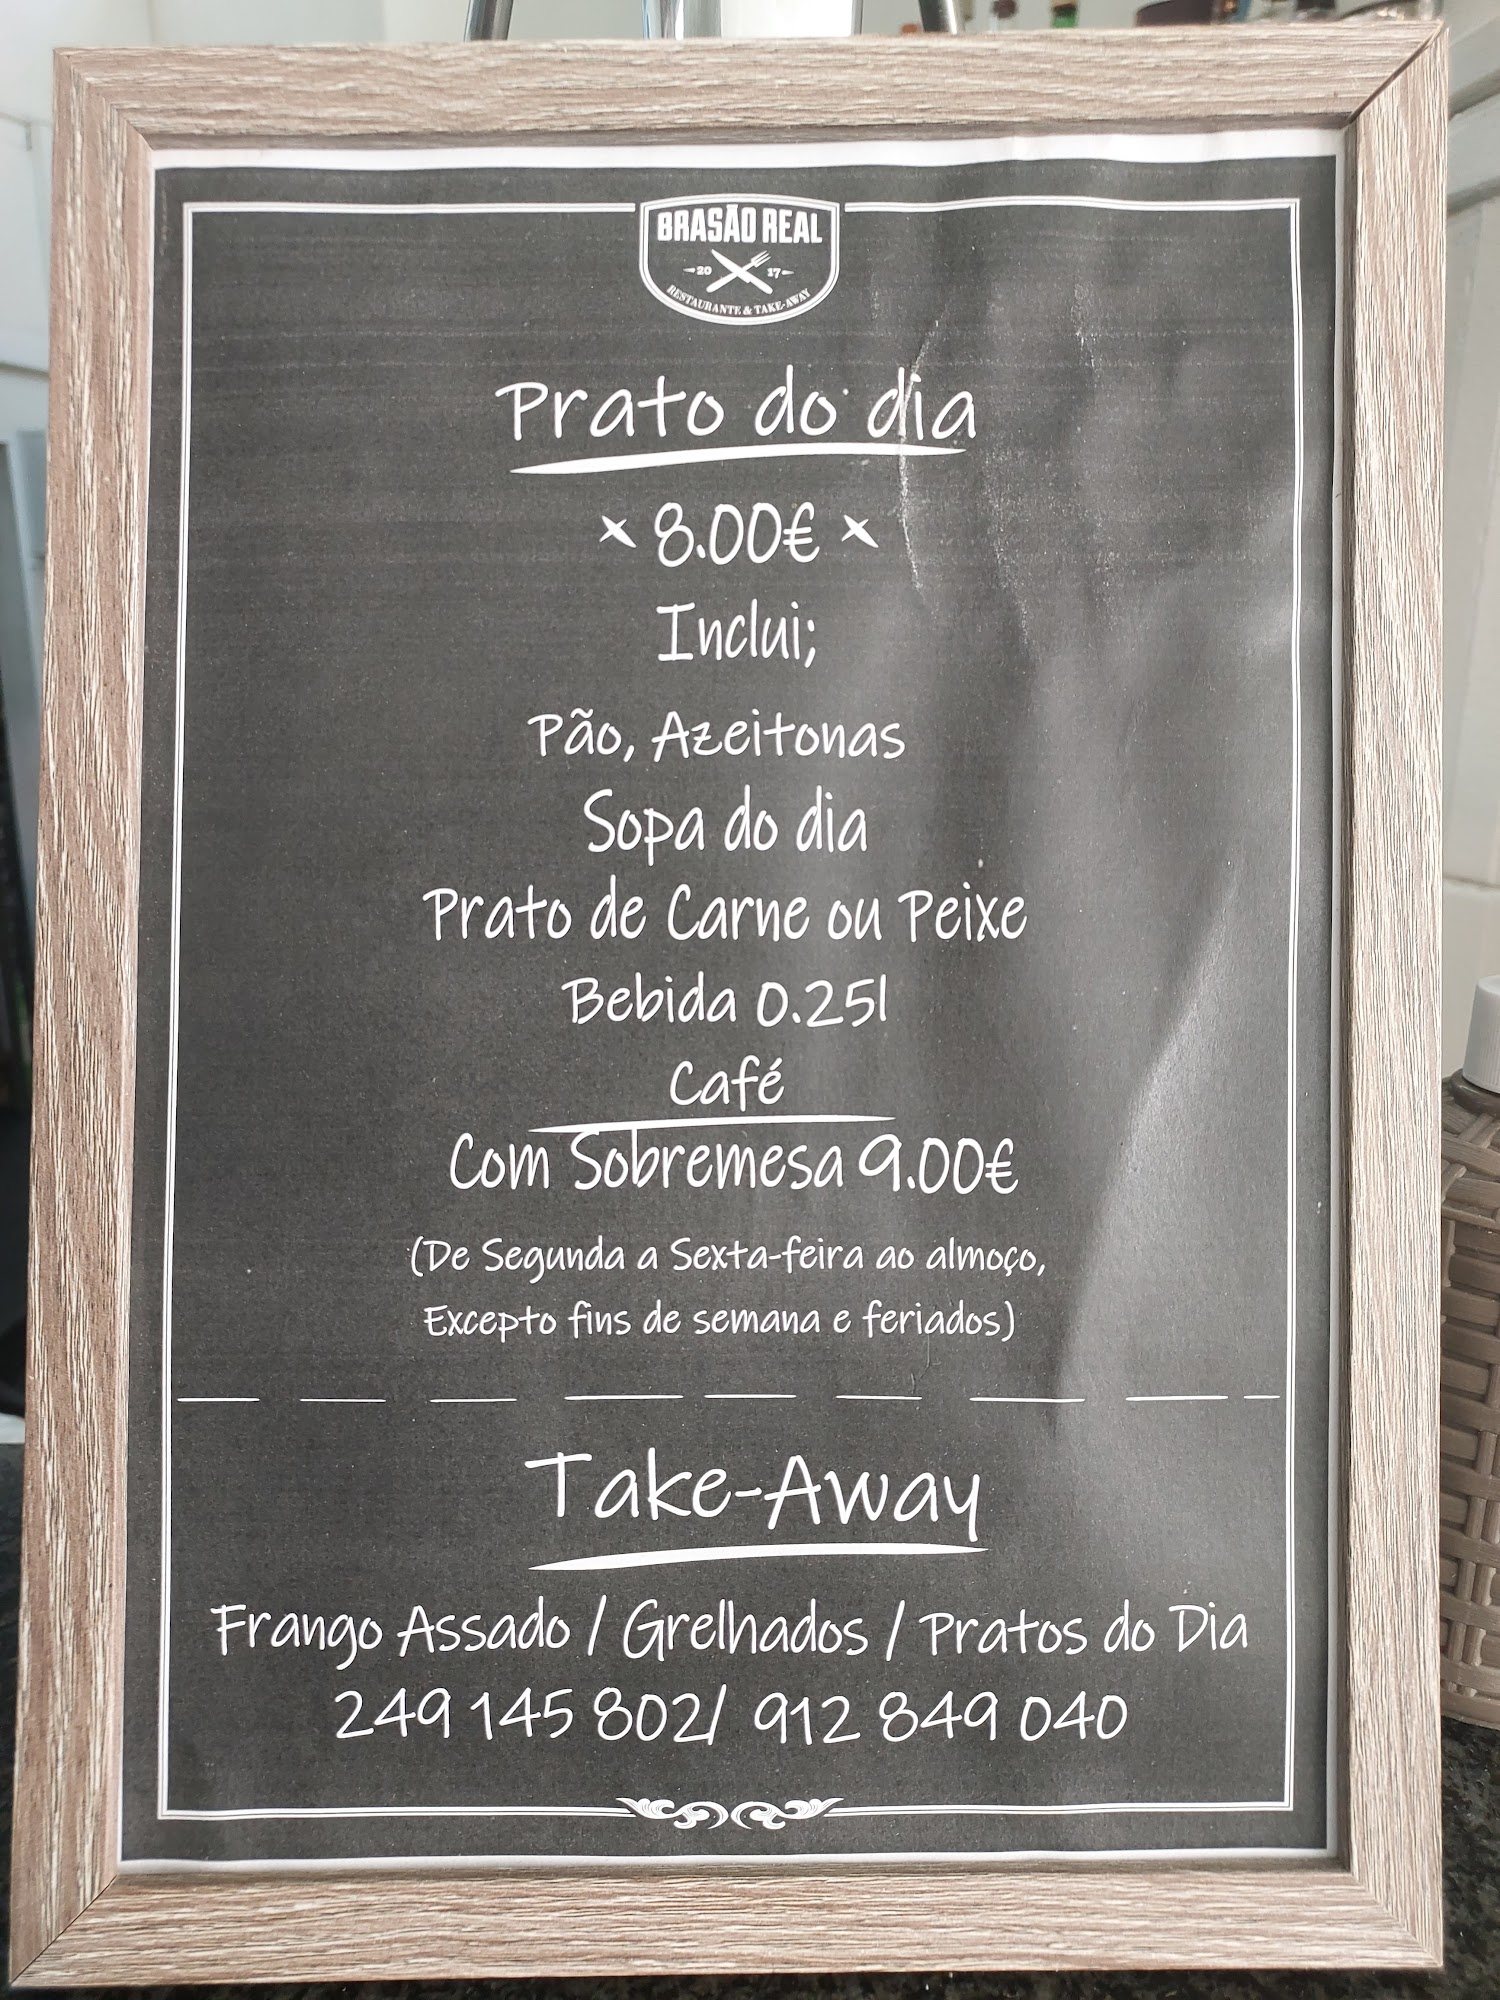 BRASÃO REAL
20 17
RESTAURANTE & TAKE-AWAY
Prato do dia
8.00€
Inclui;
Pão, Azeitonas
Sopa do dia
Prato de Carne ou Peixe
Bebida 0.25l
Café
Com Sobremesa 9.00€
(De Segunda a Sexta-feira ao almoço,
Excepto fins de semana e feriados)
Take-Away
Frango Assado / Grelhados / Pratos do Dia
249 145 802/ 912 849 040